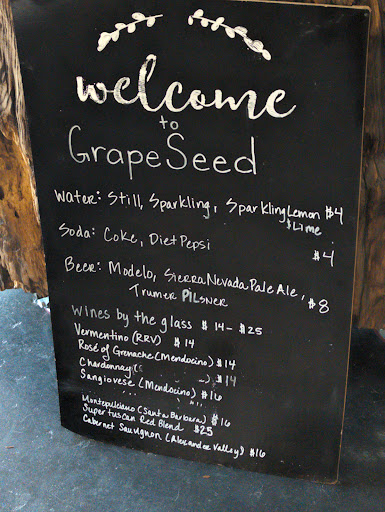 welcome
to
GrapeSeed
Water: Still, Sparkling, Sparkling Lemon $4
& Lime
Soda: Coke, Diet Pepsi $4
Beer: Modelo, Sierra Nevada Pale Ale,
Trumer Pilsner $8
Wines by the glass $14-$25
Vermentino (RRV) $14
Rosé of Grenache (Mendocino) $14
Chardonnay $14
Sangiovese (Mendocino) $16
Montepulciano (Santa Barbara) $16
Supertuscan Red Blend $25
Cabernet Sauvignon (Alexander Valley) $16